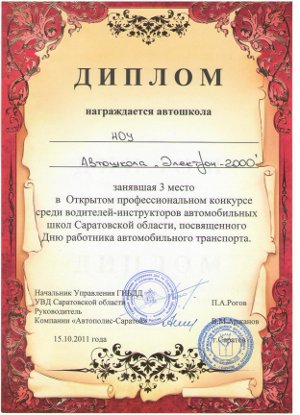 ДИПЛОМ
награждается автошкола
НОУ
Автошкола „Электрон-2000"
занявшая 3 место
в Открытом профессиональном конкурсе
среди водителей-инструкторов автомобильных
школ Саратовской области, посвященного
Дню работника автомобильного транспорта.
Начальник Управления ГИБДД
УВД Саратовской области П.А.Рогов
Руководитель
Компании «Автополис-Саратов» В.М.Аржанов
15.10.2011 года г.Саратов